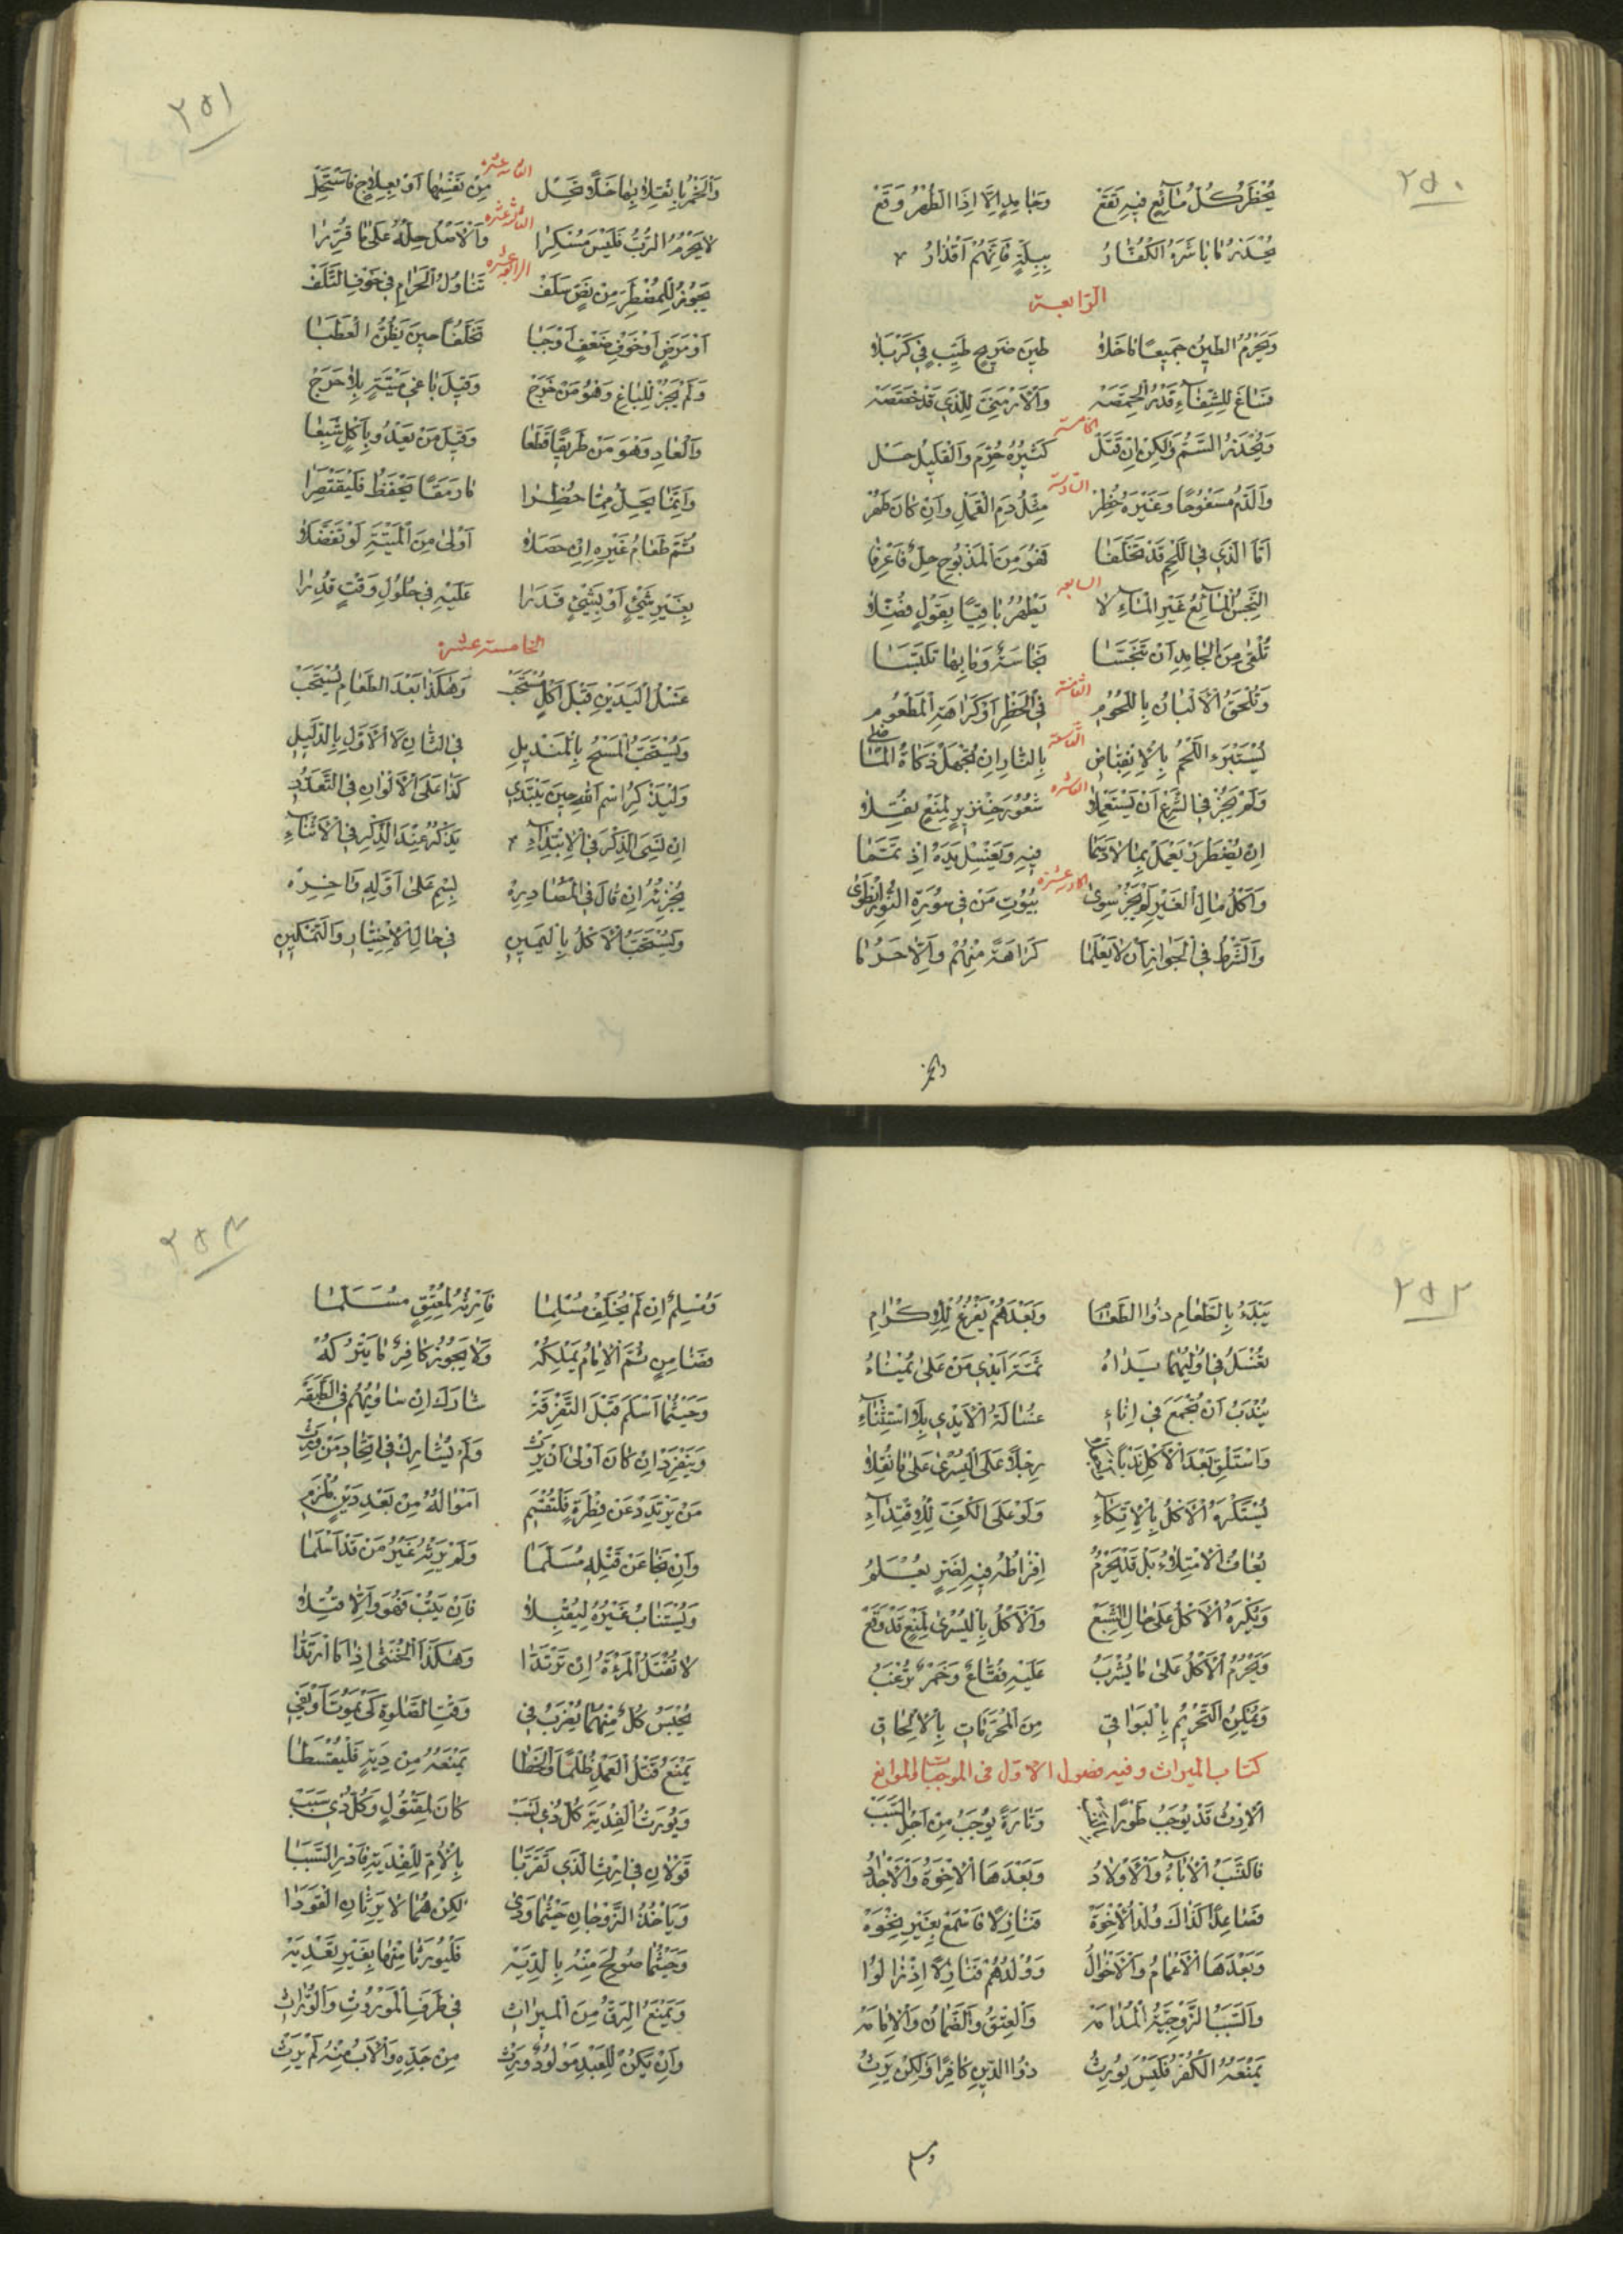 ٢٥٠
يُحْظَرُ كُلُّ مٰآئِعٍ فِيهِ تَقَعْ وَجٰامِدٍ اِلَّا اِذَا الطُّهْرُ وَقَعْ
يُحْذَرُ مٰا بٰاشَرَهُ الكُفّٰارُ بِبِلَّةٍ فَاِنَّهُمْ اَقْذٰارُ
الرّابعة
وَيَحْرُمُ الطِّينُ جَمِيعًا مٰا خَلٰا طِينَ ضَرِيحٍ طَيِّبٍ فِي كَرْبَلٰا
سٰاغَ لِلشِّفٰآءِ قَدْرُ الْحِمَّصَهْ وَالْاَرْمَنِيُّ لِلَّذِي قَدْ خَصَّصَهْ
الخامسة
وَيُحْذَرُ السَّمُّ وَلٰكِنْ اِنْ قَتَلْ كَثِيرُهُ حُرِّمَ وَالْقَلِيلُ حَلْ
السّادسة
وَالدَّمُ مَسْفُوحًا وَغَيْرَهُ حُظِرْ مِثْلُ دَمِ الْقَمْلِ وَاِنْ كٰانَ طَهُرْ
اَمَّا الَّذِي فِي اللَّحْمِ قَدْ تَخَلَّفٰا فَهُوَ مِنَ الْمَذْبُوحِ حِلٌّ فَاعْرِفٰا
السابعه
النَّجِسُ الْمٰآئِعُ غَيْرِ الْمٰآءِ لٰا يَطْهُرُ بٰاقِيًا بِقَوْلٍ فُضِّلٰا
تُلْقىٰ مِنَ الْجٰامِدِ اَنْ تَنَجَّسٰا نَجٰاسَةٌ وَمٰا بِهٰا تَلَبَّسٰا
الثامنة
وَتُلْحَقُ الْاَلْبٰانُ بِاللُّحُومِ فِي الْحَظْرِ اَوْ كَرٰاهَةِ الْمَطْعُومِ
التّاسعة
يُسْتَبْرَءُ اللَّحْمُ بِالْاِنْقِبٰاضِ بِالنّٰارِ اِنْ تُجْهَلْ ذَكٰاةُ الْمٰاضِي
العاشره
وَلَمْ يَجُزْ فِي الشَّرْعِ اَنْ يُسْتَعْمَلٰا شُعُورُ خِنْزِيرٍ لِمَنْعٍ نُقِلٰا
اِنْ يُضْطَرَرْ يَعْمَلْ بِمٰا لٰا دَسَمٰا فِيهِ وَيَغْسِلْ يَدَهُ اِذْ تَمَّمٰا
الحادية عشرة
وَاَكْلُ مٰالِ الْغَيْرِ لَمْ يَجُزْ سِوىٰ بُيُوتِ مَنْ فِي سُورَةِ النُّورِ انْطَوىٰ
وَالشَّرْطُ فِي الْجَوٰازِ اَنْ لٰا يَعْلَمٰا كَرٰاهَةً مِنْهُمْ وَاِلَّا حَرُمٰا
والخمر
٢٥١
الثانية عشره
وَالْخَمْرُ بِانْقِلٰابِهٰا خَلًّا تَحِلْ مِنْ نَفْسِهٰا اَوْ بِعِلٰاجٍ فَاسْتَحِلْ
الثالثة عشره
لٰا يَحْرُمُ الرُّبُّ فَلَيْسَ مُسْكِرٰا وَالْاَصْلُ حِلُّهُ عَلىٰ مٰا قُرِّرٰا
الرابعة عشره
يَجُوزُ لِلْمُضْطَرِّ مِنْ نَصٍّ سَلَفْ تَنٰاوُلُ الْحَرٰامِ فِي خَوْفِ التَّلَفْ
اَوْ مَرَضٍ اَوْ خَوْفِ ضَعْفٍ اَوْجَبٰا تَخَلُّفًا حِينَ يَظُنُّ الْعَطَبٰا
وَلَمْ يَجُزْ لِلْبٰاغِ وَهُوَ مَنْ خَرَجْ وَقِيلَ بٰاغِي مَيْتَةٍ بِلٰا حَرَجْ
وَالْعٰادِ وَهْوَ مَنْ طَرِيقًا قَطَعٰا وَقِيلَ مَنْ يَعْدُو بِاَكْلٍ شَبِعٰا
وَاِنَّمٰا يَحِلُّ مِمّٰا حُظِرٰا مٰا رَمَقًا يَحْفَظُ فَلْيَقْتَصِرٰا
ثُمَّ طَعٰامُ غَيْرِهِ اِنْ حَصَلٰا اَوْلىٰ مِنَ الْمَيْتَةِ لَوْ تَفَضَّلٰا
بِغَيْرِ شَيْءٍ اَوْ بِشَيْءٍ قَدَرٰا عَلَيْهِ فِي حُلُولِ وَقْتٍ قُدِّرٰا
الخامسة عشره
غَسْلُ الْيَدَيْنِ قَبْلَ اَكْلٍ مُسْتَحَبْ وَهٰكَذٰا بَعْدَ الطَّعٰامِ يُسْتَحَبْ
وَيُسْتَحَبُّ الْمَسْحُ بِالْمَنْدِيلِ فِي الثّٰانِ لَا الْاَوَّلِ بِالدَّلِيلِ
وَلْيَذْكُرِ اسْمَ اللهِ حِينَ يَبْتَدِي كَذٰا عَلَى الْاَلْوٰانِ فِي التَّعَدُّدِ
اِنْ نَسِيَ الذِّكْرَ فِي الْاِبْتِدٰآءِ يَذْكُرُ عِنْدَ الذِّكْرِ فِي الْاَثْنٰاءِ
يُجْزِئُهُ اِنْ قٰالَ فِي مُصٰادِرِهْ بِسْمِ عَلىٰ اَوَّلِهِ وَاٰخِرِهْ
وَيُسْتَحَبُّ الْاَكْلُ بِالْيَمِينِ فِي حٰالِ الْاِخْتِيٰارِ وَالتَّمْكِينِ
٢٥٢
يَبْدَءُ بِالطَّعٰامِ ذُو الطَّعٰامِ وَبَعْدَهُمْ يَفْرُغُ لِلْاِكْرٰامِ
تُغْسَلُ فِي اُولِيهُمٰا يَدٰاهُ ثَمَّةَ اَيْدِي مَنْ عَلىٰ يُمْنٰاهُ
يُنْدَبُ اَنْ تُجْمَعَ فِي اِنٰاءِ غُسٰالَةُ الْاَيْدِي بِلَا اسْتِثْنٰآءِ
وَاسْتَلْقِ بَعْدَ الْاَكْلِ نَدْبًا رِجْلًا عَلَى الْيُسْرىٰ عَلىٰ مٰا نُقِلٰا
يُسْتَكْرَهُ الْاَكْلُ بِالْاِتِّكٰآءِ وَلَوْ عَلَى الْكَفِّ لِلْاِقْتِدٰآءِ
يُعٰافُ الْاِمْتِلٰاءُ بَلْ قَدْ يَحْرُمُ اِفْرٰاطُهُ فِيهِ لِضَرٍّ يُعْلَمُ
وَيُكْرَهُ الْاَكْلُ عَلىٰ حٰالِ الشِّبَعْ وَالْاَكْلُ بِالْيُسْرىٰ لِمَنْعٍ قَدْ وَقَعْ
وَيَحْرُمُ الْاَكْلُ عَلىٰ مٰا يُشْرَبُ عَلَيْهِ فُقّٰاعٌ وَخَمْرٌ تُرْغَبُ
وَيُمْكِنُ التَّحْرِيمُ بِالْبَوٰاقِي مِنَ الْمُحَرَّمٰاتِ بِالْاِلْحٰاقِ
كتاب الميراث وفيه فصول الاوّل فى الموجبات والموانع
اَلْاِرْثُ قَدْ يُوجَبُ طَوْرًا وَتٰارَةً يُوجَبُ مِنْ اَجْلِ السَّبَبْ
فَالنَّسَبُ الْاٰبٰاءُ وَالْاَوْلٰادُ وَبَعْدَهَا الْاِخْوَةُ وَالْاَجْدٰادُ
فَصٰاعِدًا كَذٰاكَ وُلْدُ الْاِخْوَةْ فَنٰازِلًا فَاسْمَعْ بِغَيْرِ نَخْوَهْ
وَبَعْدَهَا الْاَعْمٰامُ وَالْاَخْوٰالُ وَوُلْدُهُمْ فَنٰازِلًا اِذْ زٰالُوا
وَالسَّبَبُ الزَّوْجِيَّةُ الْمُدٰامَهْ وَالْعِتْقُ وَالضَّمٰانُ وَالْاِمٰامَهْ
يَمْنَعُهُ الْكُفْرُ فَلَيْسَ يُورِثُ ذُو الدِّينِ كٰافِرًا وَلٰكِنْ يَرِثُ
ومسلم
٢٥٣
وَمُسْلِمٌ اِنْ لَمْ يُخَلِّفْ مُسْلِمٰا فَاِرْثُهُ لِمُعْتِقٍ مُسَلَّمٰا
فَضٰامِنٍ ثُمَّ الْاِمٰامُ يَمْلِكُهْ وَلٰا يَحُوزُ كٰافِرٌ مٰا يَتْرُكُهْ
وَحَيْثُمٰا اَسْلَمَ قَبْلَ التَّفْرِقَهْ شٰارَكَ اِنْ سٰاوٰيهُمُ فِي الطَّبَقَهْ
وَيَنْفَرِدْ اِنْ كٰانَ اَوْلىٰ اَنْ يَرِثْ وَلَمْ يُشٰارِكْ فِي اتِّحٰادِ مَنْ وَرِثْ
مَنْ يَرْتَدِدْ عَنْ فِطْرَةٍ فَلْتُقْسَمِ اَمْوٰالُهُ مِنْ بَعْدِ دَيْنٍ مُلْزَمِ
وَاِنْ نَجٰا عَنْ قَتْلِهِ مُسَلَّمٰا وَلَمْ يَرِثْهُ غَيْرُ مَنْ قَدْ اَسْلَمٰا
وَيُسْتَتٰابُ غَيْرُهُ لِيُقْبَلٰا فَاِنْ يَتُبْ فَهُوَ وَاِلَّا قُتِلٰا
لٰا تُقْتَلُ الْمَرْئَةُ اِنْ تَرْتَدّٰا وَهٰكَذَا الْخُنْثىٰ اِذٰا مَا ارْتَدّٰا
يُحْبَسُ كُلٌّ مِنْهُمٰا يُضْرَبُ فِي وَقْتِ الصَّلٰوةِ كَيْ يَمُوتَ اَوْ يَفِي
يَمْنَعُ قَتْلُ الْعَمْدِ ظُلْمًا وَالْخَطٰا يَمْنَعُهُ مِنْ دِيَةٍ فَلْيُقْسَطٰا
وَيُورَثُ الْفِدْيَةَ كُلُّ ذِي نَسَبْ كٰانَ لِمَقْتُولٍ وَكُلُّ ذِي سَبَبْ
قَوْلٰانِ فِي اِرْثِ الَّذِي تَقَرَّبٰا بِالْاُمِّ لِلْفِدْيَةِ فَادْرِ السَّبَبٰا
وَيَاْخُذُ الزَّوْجٰانِ حَيْثُمٰا وَدىٰ لٰكِنْ هُمٰا لٰا يَرِثٰانِ الْقَوَدٰا
وَحَيْثُمٰا صُولِحَ مِنْهُ بِالدِّيَهْ فَلْيُورَثٰا مِنْهٰا بِغَيْرِ تَعْدِيَهْ
وَيَمْنَعُ الرِّقُّ مِنَ الْمِيرٰاثِ فِي طَرَفِ الْمَوْرُوثِ وَالْوُرّٰاثِ
وَاِنْ يَكُنْ لِلْعَبْدِ مَوْلُودٌ وَرِثْ مِنْ جَدِّهِ وَالْاَبُ مِنْهُ لَمْ يَرِثْ